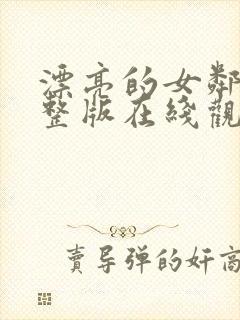 漂亮的女鄰
整版在綫觀
賣导弹的奸商